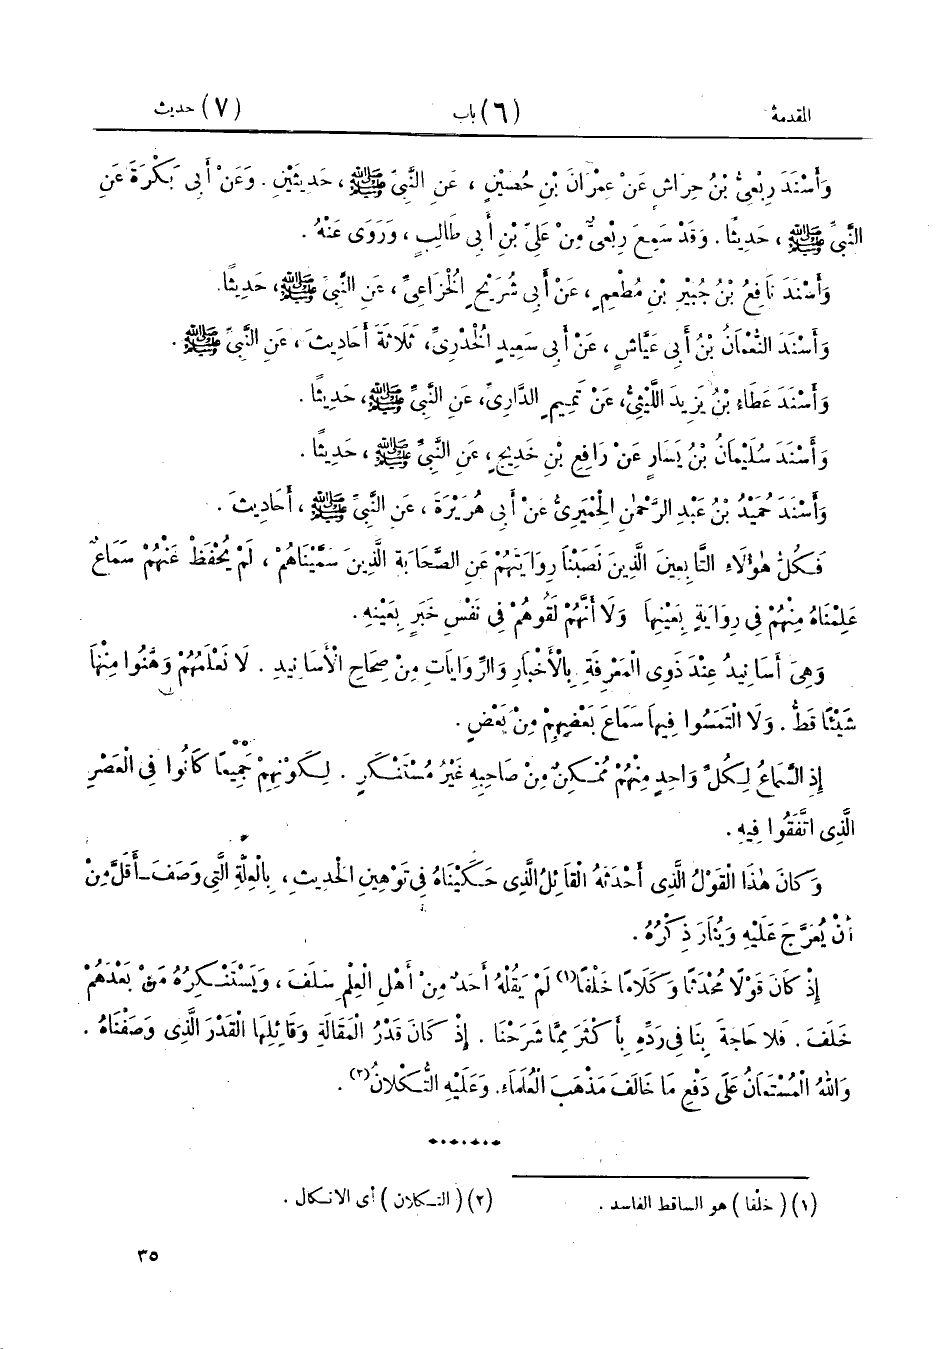 المقدمة (٦) باب (٧) حديث
وَأَسْنَدَ رِبْعِيُّ بْنُ حِرَاشٍ عَنْ عِمْرَانَ بْنِ حُصَيْنٍ ، عَنِ النَّبِيِّ ﷺ ، حَدِيثَيْنِ . وَعَنْ أَبِي بَكْرَةَ عَنِ
النَّبِيِّ ﷺ ، حَدِيثًا . وَقَدْ سَمِعَ رِبْعِيٌّ مِنْ عَلِيِّ بْنِ أَبِي طَالِبٍ ، وَرَوَى عَنْهُ .
وَأَسْنَدَ نَافِعُ بْنُ جُبَيْرِ بْنِ مُطْعِمٍ ، عَنْ أَبِي شُرَيْحٍ الْخُزَاعِيِّ ، عَنِ النَّبِيِّ ﷺ ، حَدِيثًا.
وَأَسْنَدَ النُّعْمَانُ بْنُ أَبِي عَيَّاشٍ ، عَنْ أَبِي سَعِيدٍ الْخُدْرِيِّ، ثَلَاثَةَ أَحَادِيثَ ، عَنِ النَّبِيِّ ﷺ .
وَأَسْنَدَ عَطَاءُ بْنُ يَزِيدَ اللَّيْثِيُّ، عَنْ تَمِيمٍ الدَّارِيِّ، عَنِ النَّبِيِّ ﷺ ، حَدِيثًا .
وَأَسْنَدَ سُلَيْمَانُ بْنُ يَسَارٍ عَنْ رَافِعِ بْنِ خَدِيجٍ ، عَنِ النَّبِيِّ ﷺ ، حَدِيثًا .
وَأَسْنَدَ حُمَيْدُ بْنُ عَبْدِ الرَّحْمٰنِ الْحِمْيَرِيُّ عَنْ أَبِي هُرَيْرَةَ ، عَنِ النَّبِيِّ ﷺ ، أَحَادِيثَ .
فَكُلُّ هٰؤُلَاءِ التَّابِعِينَ الَّذِينَ نَصَبْنَا رِوَايَتَهُمْ عَنِ الصَّحَابَةِ الَّذِينَ سَمَّيْنَاهُمْ ، لَمْ يُحْفَظْ عَنْهُمْ سَمَاعٌ
عَلِمْنَاهُ مِنْهُمْ فِي رِوَايَةٍ بِعَيْنِهَا وَلَا أَنَّهُمْ لَقُوهُمْ فِي نَفْسِ خَبَرٍ بِعَيْنِهِ .
وَهِيَ أَسَانِيدُ عِنْدَ ذَوِي الْمَعْرِفَةِ بِالْأَخْبَارِ وَالرِّوَايَاتِ مِنْ صِحَاحِ الْأَسَانِيدِ . لَا نَعْلَمُهُمْ وَهَّنُوا مِنْهَا
شَيْئًا قَطُّ . وَلَا الْتَمَسُوا فِيهَا سَمَاعَ بَعْضِهِمْ مِنْ بَعْضٍ .
إِذِ السَّمَاعُ لِكُلِّ وَاحِدٍ مِنْهُمْ مُمْكِنٌ مِنْ صَاحِبِهِ غَيْرُ مُسْتَنْكَرٍ . لِكَوْنِهِمْ جَمِيعًا كَانُوا فِي الْعَصْرِ
الَّذِي اتَّفَقُوا فِيهِ .
وَكَانَ هٰذَا الْقَوْلُ الَّذِي أَحْدَثَهُ الْقَائِلُ الَّذِي حَكَيْنَاهُ فِي تَوْهِينِ الْحَدِيثِ ، بِالْعِلَّةِ الَّتِي وَصَفَ - أَقَلَّ مِنْ
أَنْ يُعَرَّجَ عَلَيْهِ وَيُثَارَ ذِكْرُهُ .
إِذْ كَانَ قَوْلًا مُحْدَثًا وَكَلَامًا خَلْفًا(١) لَمْ يَقُلْهُ أَحَدٌ مِنْ أَهْلِ الْعِلْمِ سَلَفَ ، وَيَسْتَنْكِرُهُ مَنْ بَعْدَهُمْ
خَلَفَ . فَلَا حَاجَةَ بِنَا فِي رَدِّهِ بِأَكْثَرَ مِمَّا شَرَحْنَا . إِذْ كَانَ قَدْرُ الْمَقَالَةِ وَقَائِلِهَا الْقَدْرَ الَّذِي وَصَفْنَاهُ .
وَاللهُ الْمُسْتَعَانُ عَلَى دَفْعِ مَا خَالَفَ مَذْهَبَ الْعُلَمَاءِ. وَعَلَيْهِ التُّكْلَانُ(٢) .
(١) ( خلْفا ) هو الساقط الفاسد . (٢) ( التـكلان ) أى الاتـكال .
٣٥